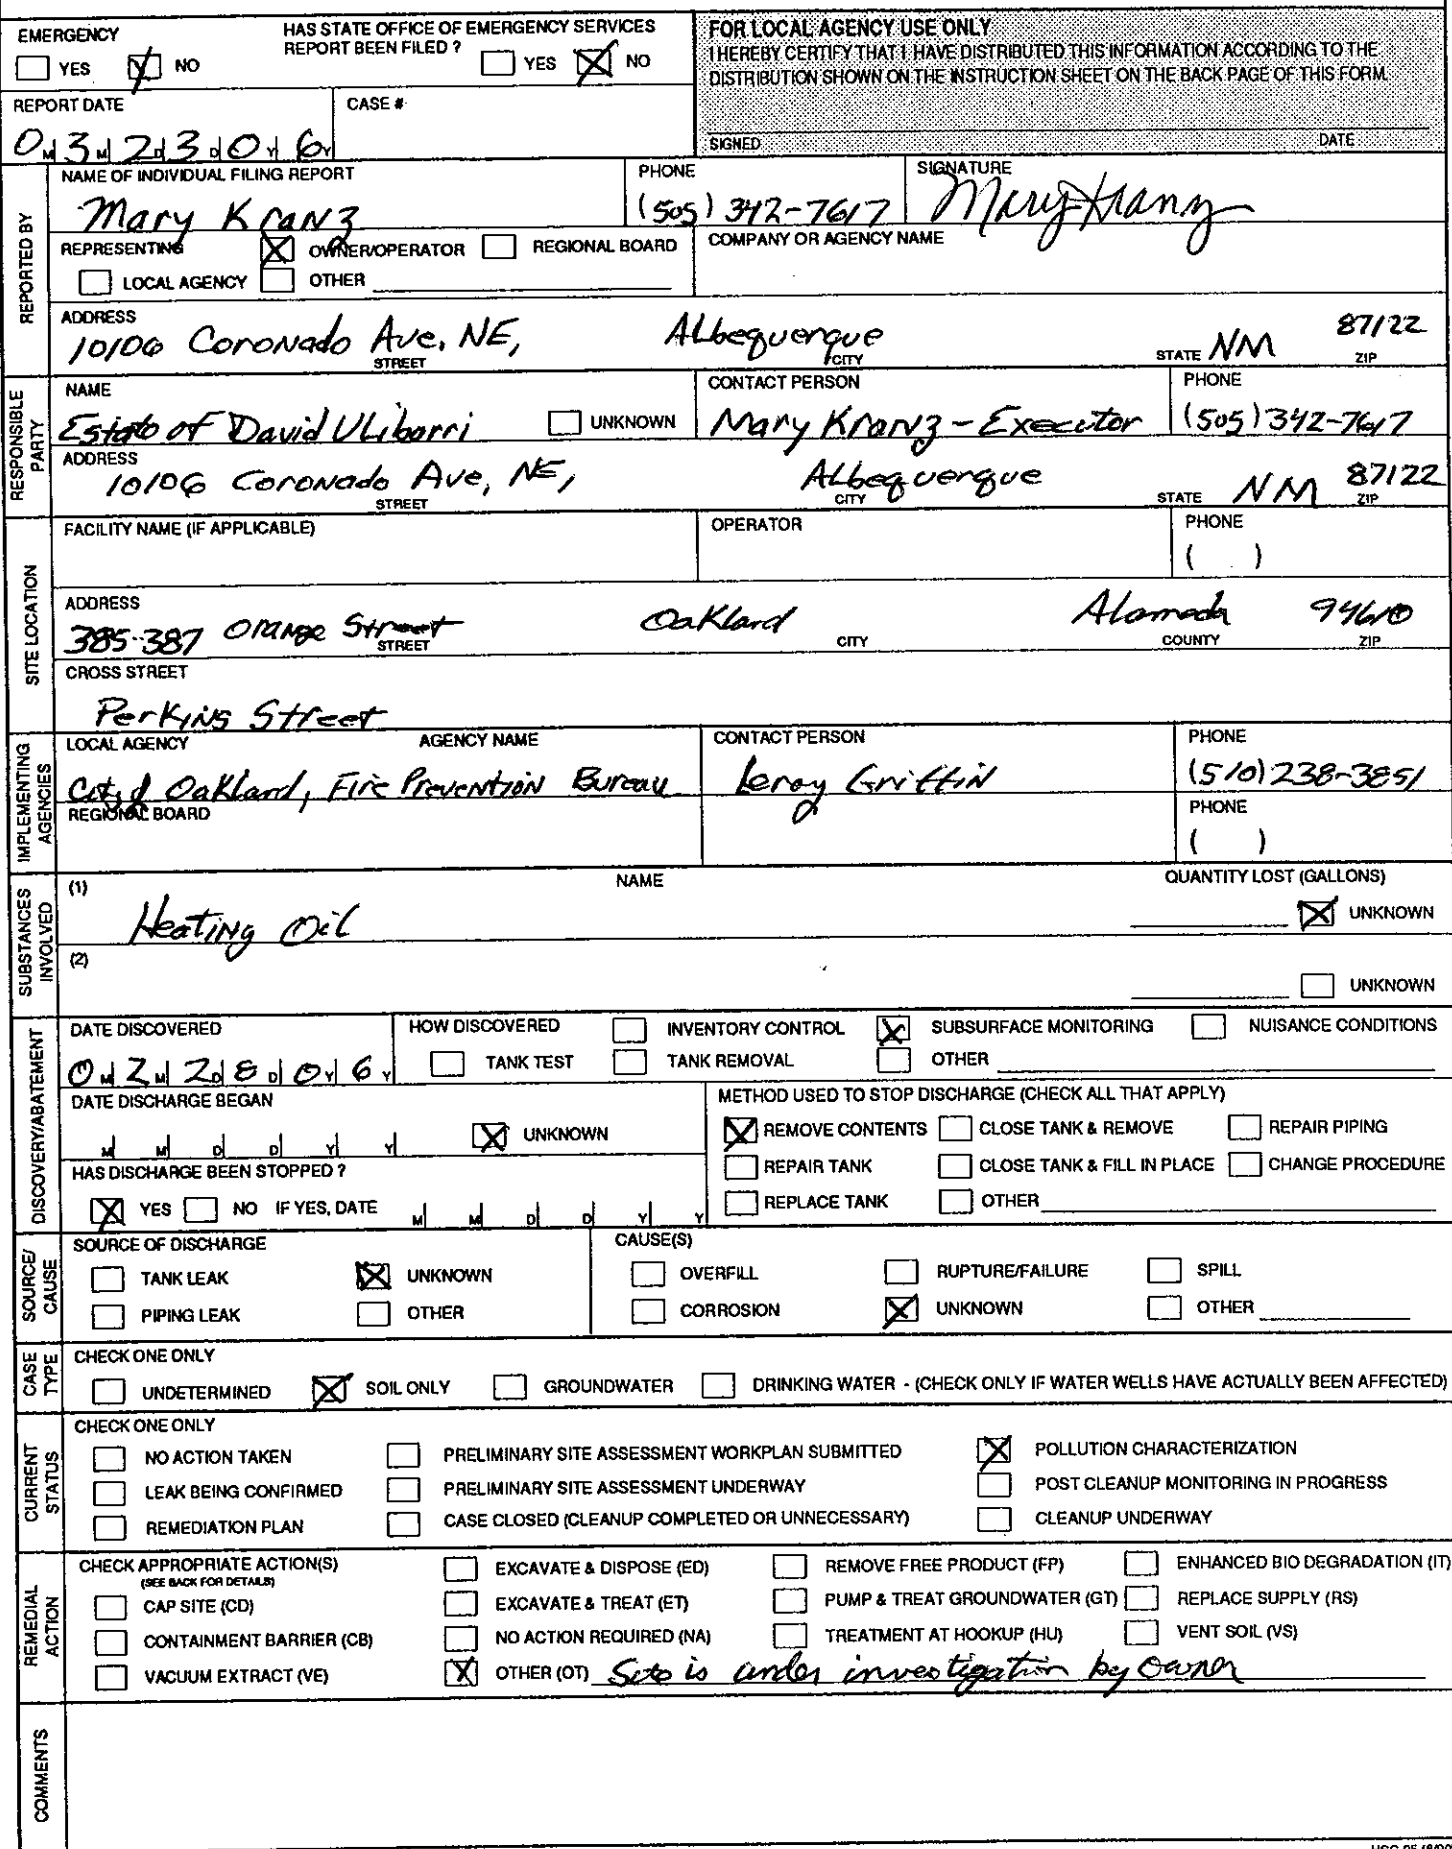 EMERGENCY
YES NO
HAS STATE OFFICE OF EMERGENCY SERVICES
REPORT BEEN FILED ?
YES NO
FOR LOCAL AGENCY USE ONLY
I HEREBY CERTIFY THAT I HAVE DISTRIBUTED THIS INFORMATION ACCORDING TO THE
DISTRIBUTION SHOWN ON THE INSTRUCTION SHEET ON THE BACK PAGE OF THIS FORM.
SIGNED DATE
REPORT DATE
0 M 3 M 2 D 3 D 0 Y 6 Y
CASE #
REPORTED BY
NAME OF INDIVIDUAL FILING REPORT
Mary Kranz
PHONE
(505) 342-7617
SIGNATURE
Mary Kranz
REPRESENTING OWNER/OPERATOR REGIONAL BOARD
LOCAL AGENCY OTHER
COMPANY OR AGENCY NAME
ADDRESS
10106 Coronado Ave. NE, Albequerque NM 87122
STREET CITY STATE ZIP
RESPONSIBLE PARTY
NAME
Estate of David Ulibarri UNKNOWN
CONTACT PERSON
Mary Kranz - Executor
PHONE
(505) 342-7617
ADDRESS
10106 Coronado Ave, NE, Albequerque NM 87122
STREET CITY STATE ZIP
SITE LOCATION
FACILITY NAME (IF APPLICABLE)
OPERATOR
PHONE
( )
ADDRESS
385-387 Orange Street Oakland Alameda 94610
STREET CITY COUNTY ZIP
CROSS STREET
Perkins Street
IMPLEMENTING AGENCIES
LOCAL AGENCY AGENCY NAME
City of Oakland, Fire Prevention Bureau
CONTACT PERSON
Leroy Griffin
PHONE
(510) 238-3851
REGIONAL BOARD
PHONE
( )
SUBSTANCES INVOLVED
(1) NAME QUANTITY LOST (GALLONS)
Heating Oil UNKNOWN
(2)
UNKNOWN
DISCOVERY/ABATEMENT
DATE DISCOVERED
0 M 2 M 2 D 8 D 0 Y 6 Y
HOW DISCOVERED INVENTORY CONTROL SUBSURFACE MONITORING NUISANCE CONDITIONS
TANK TEST TANK REMOVAL OTHER
DATE DISCHARGE BEGAN
M M D D Y Y UNKNOWN
METHOD USED TO STOP DISCHARGE (CHECK ALL THAT APPLY)
REMOVE CONTENTS CLOSE TANK & REMOVE REPAIR PIPING
REPAIR TANK CLOSE TANK & FILL IN PLACE CHANGE PROCEDURE
REPLACE TANK OTHER
HAS DISCHARGE BEEN STOPPED ?
YES NO IF YES, DATE M M D D Y Y
SOURCE/ CAUSE
SOURCE OF DISCHARGE
TANK LEAK UNKNOWN
PIPING LEAK OTHER
CAUSE(S)
OVERFILL RUPTURE/FAILURE SPILL
CORROSION UNKNOWN OTHER
CASE TYPE
CHECK ONE ONLY
UNDETERMINED SOIL ONLY GROUNDWATER DRINKING WATER - (CHECK ONLY IF WATER WELLS HAVE ACTUALLY BEEN AFFECTED)
CURRENT STATUS
CHECK ONE ONLY
NO ACTION TAKEN PRELIMINARY SITE ASSESSMENT WORKPLAN SUBMITTED POLLUTION CHARACTERIZATION
LEAK BEING CONFIRMED PRELIMINARY SITE ASSESSMENT UNDERWAY POST CLEANUP MONITORING IN PROGRESS
REMEDIATION PLAN CASE CLOSED (CLEANUP COMPLETED OR UNNECESSARY) CLEANUP UNDERWAY
REMEDIAL ACTION
CHECK APPROPRIATE ACTION(S)
(SEE BACK FOR DETAILS)
EXCAVATE & DISPOSE (ED) REMOVE FREE PRODUCT (FP) ENHANCED BIO DEGRADATION (IT)
CAP SITE (CD) EXCAVATE & TREAT (ET) PUMP & TREAT GROUNDWATER (GT) REPLACE SUPPLY (RS)
CONTAINMENT BARRIER (CB) NO ACTION REQUIRED (NA) TREATMENT AT HOOKUP (HU) VENT SOIL (VS)
VACUUM EXTRACT (VE) OTHER (OT) Site is under investigation by owner
COMMENTS